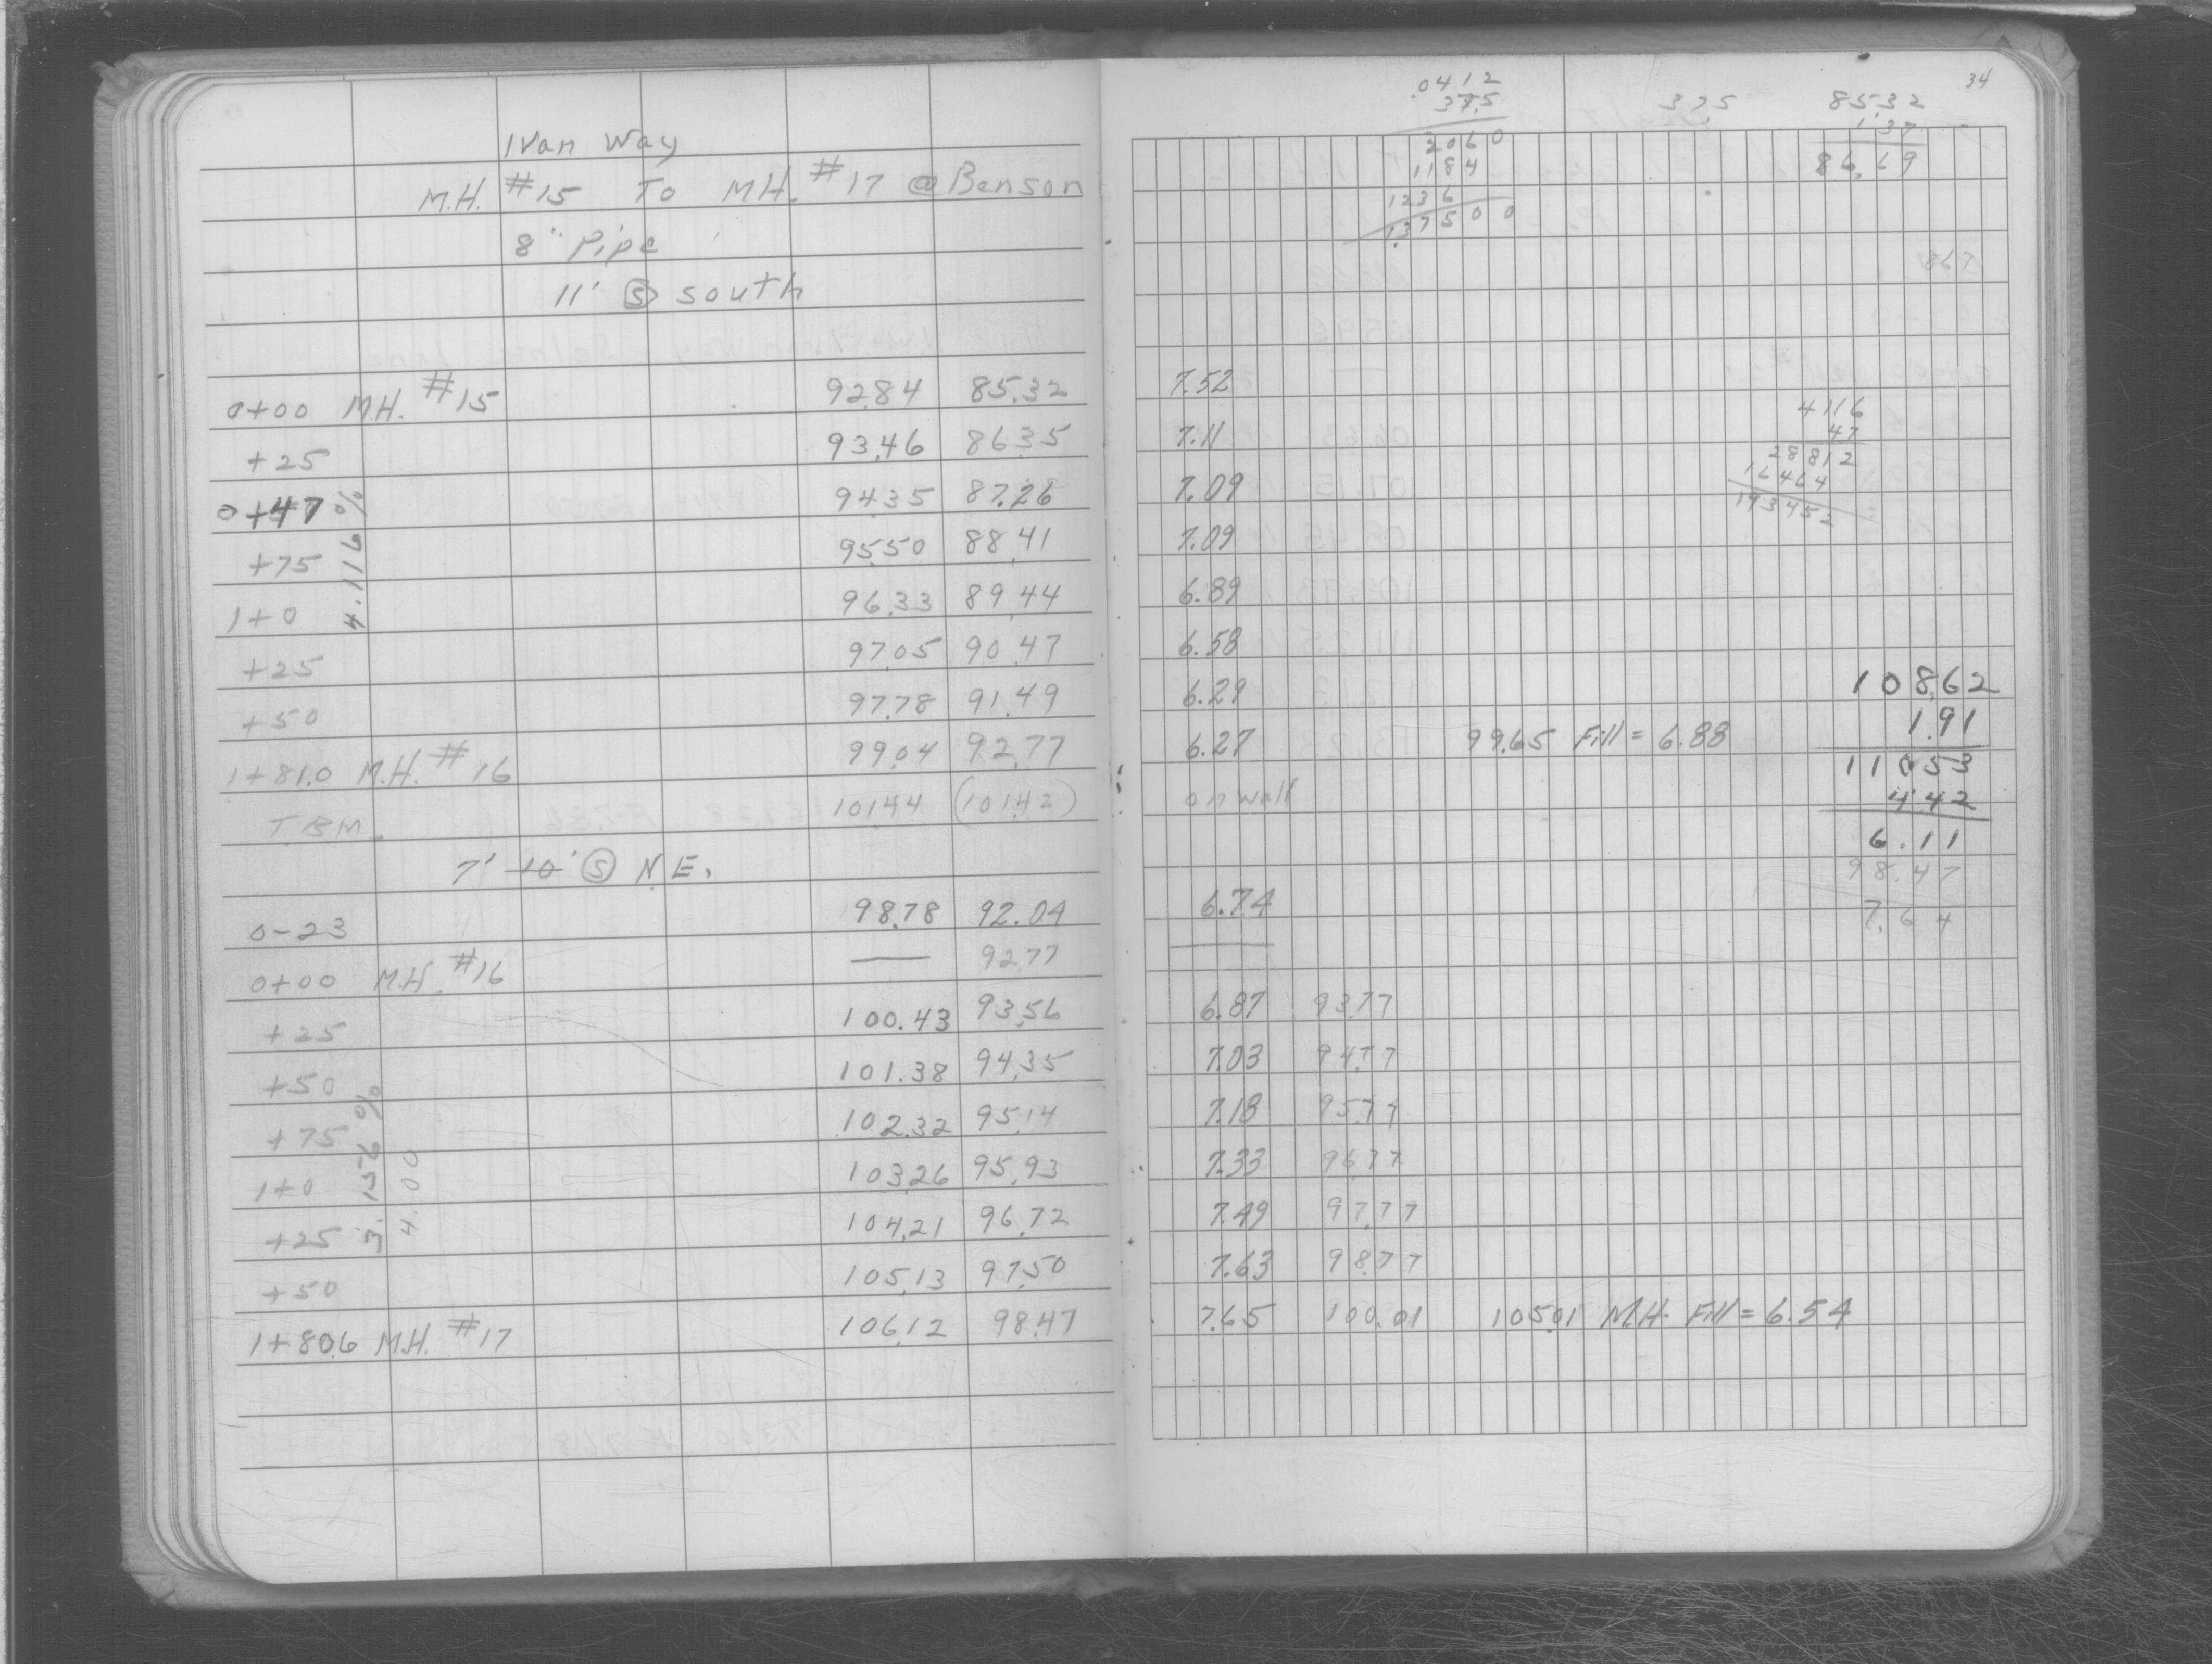 Ivan Way
M.H. #15 To M.H. #17 @ Benson
8" Pipe
11' Ⓢ south
0+00 M.H. #15 92.84 85.32
+25 93.46 86.35
0+47 94.35 87.26
+75 95.50 88.41
1+0 96.33 89.44
+25 97.05 90.47
+50 97.78 91.49
1+81.0 M.H. #16 99.04 92.77
4.116 %
T.B.M. 101.44 (101.42)
7' 10' Ⓢ N.E.
0-23 98.78 92.04
0+00 M.H. #16 — 92.77
+25 100.43 93.56
+50 101.38 94.35
+75 102.32 95.14
1+0 103.26 95.93
+25 104.21 96.72
+50 105.13 97.50
1+80.6 M.H. #17 106.12 98.47
3.156 %
4.00
34
.0412
37.5
2060
1184
1236
1.37500
37.5
85.32
1.37
86.69
867
7.52
7.11
7.09
7.09
6.89
6.58
6.29
6.27 99.65 Fill = 6.88
on wall
4116
47
28812
16464
193452
108.62
1.91
110.53
4.42
6.11
98.47
7.64
6.74
6.87 93.77
7.03 94.77
7.18 95.77
7.33 96.77
7.49 97.77
7.63 98.77
7.65 100.01 105.01 M.H. Fill = 6.54